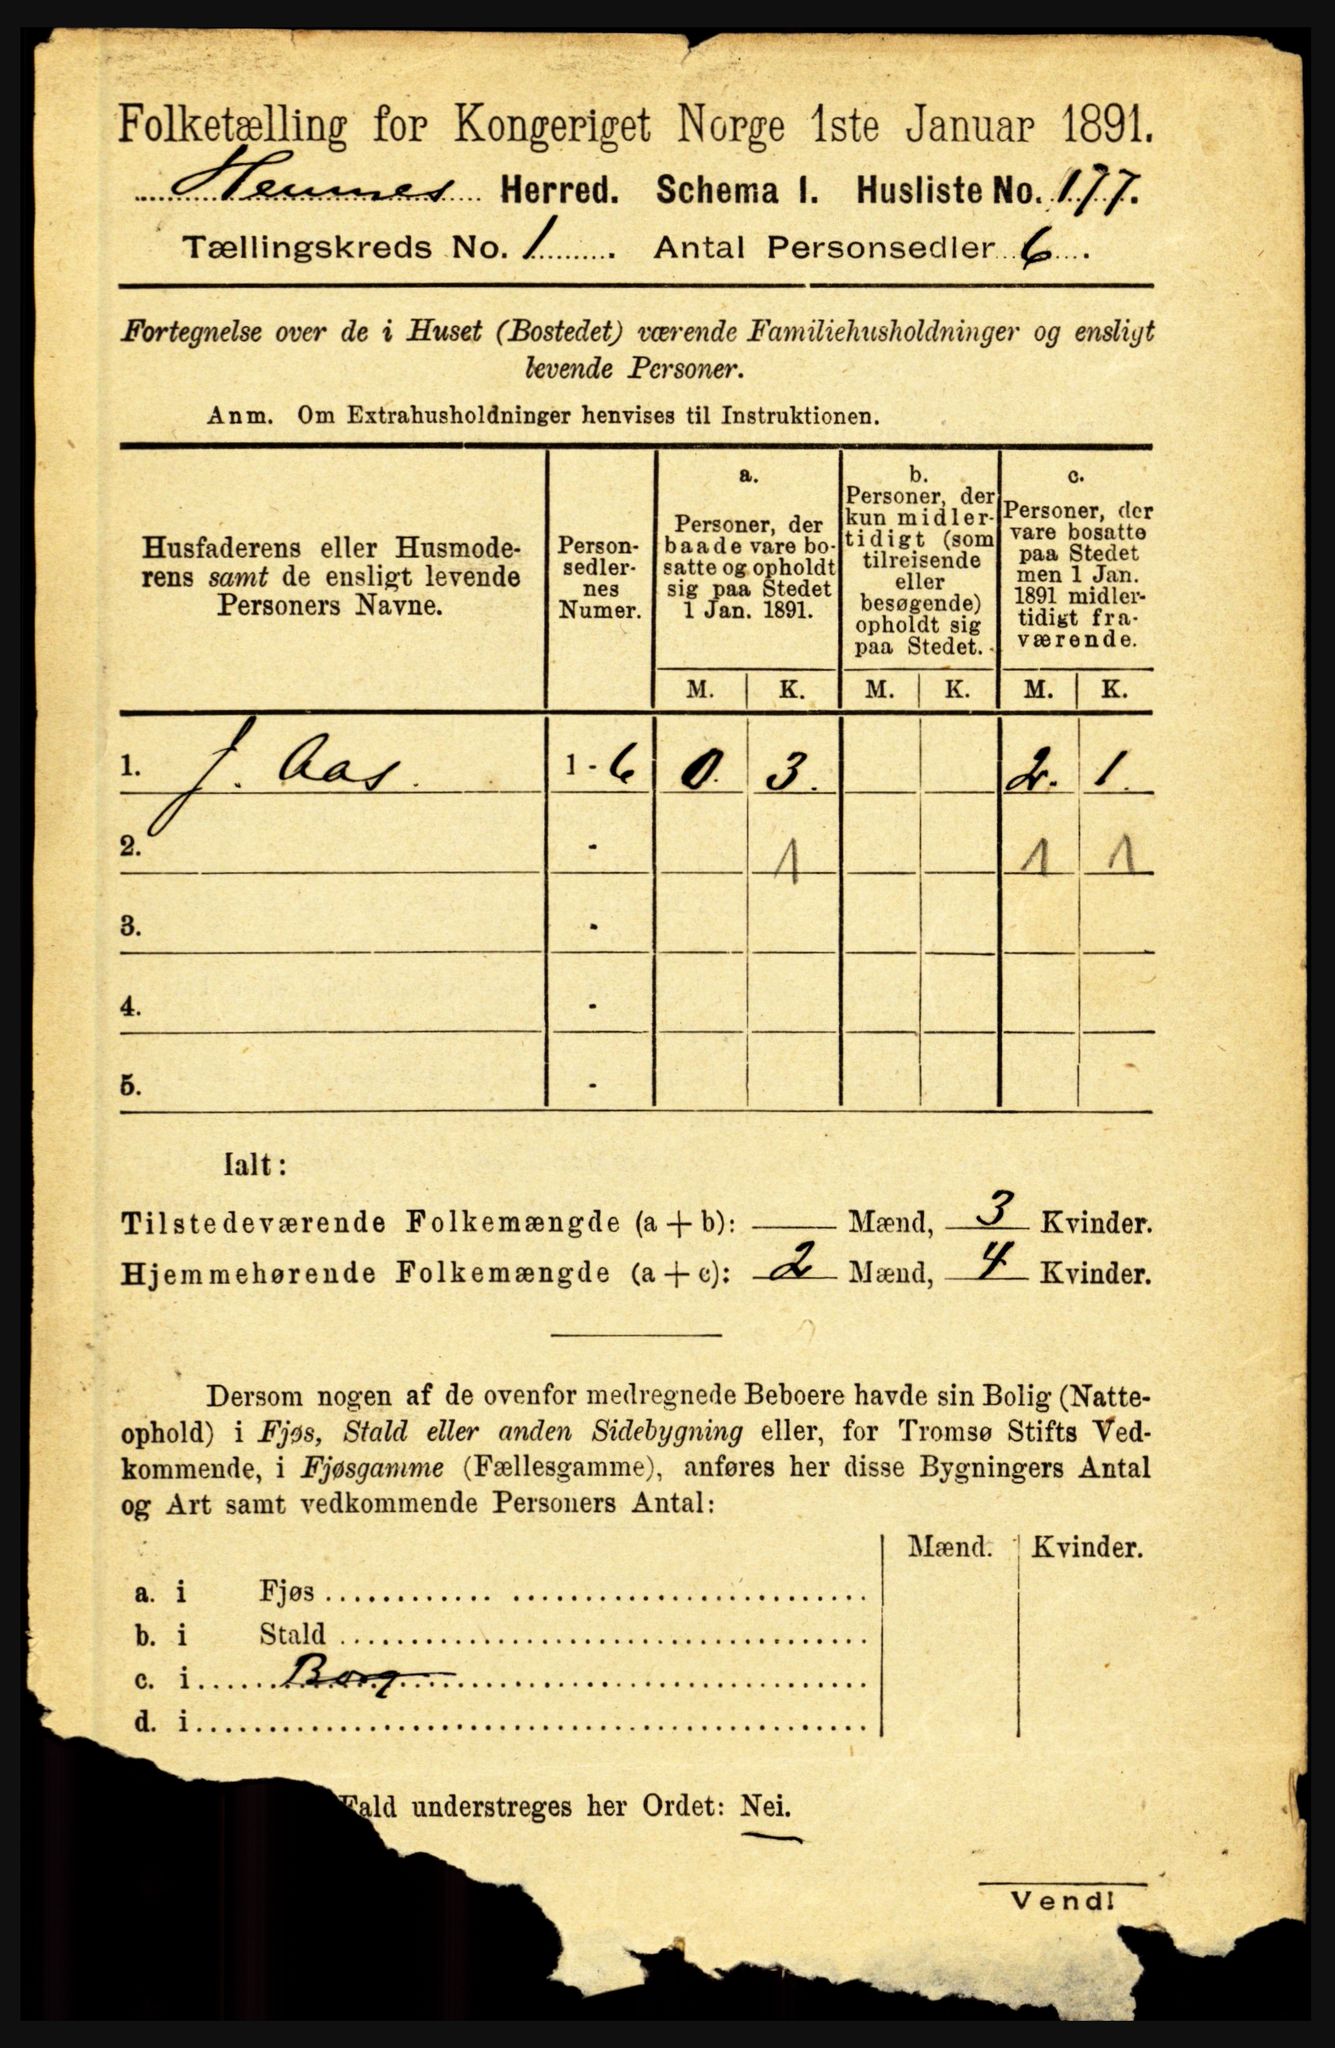 Folketælling for Kongeriget Norge 1ste Januar 1891.
Hemnes Herred. Schema I. Husliste No. 177.
Tællingskreds No. 1. Antal Personsedler 6.
Fortegnelse over de i Huset (Bostedet) værende Familiehusholdninger og ensligt
levende Personer.
Anm. Om Extrahusholdninger henvises til Instruktionen.
Husfaderens eller Husmode-
rens samt de ensligt levende
Personers Navne.
Person-
sedler-
nes
Numer.
a.
Personer, der
baade vare bo-
satte og opholdt
sig paa Stedet
1 Jan. 1891.
b.
Personer, der
kun midler-
tidigt (som
tilreisende
eller
besøgende)
opholdt sig
paa Stedet.
c.
Personer, der
vare bosatte
paa Stedet
men 1 Jan.
1891 midler-
tidigt fra-
værende.
M. K. M. K. M. K.
1. J. Aas. 1 - 6 0. 3. 2. 1.
2. - 1 1 1
3. -
4. -
5. -
Ialt:
Tilstedeværende Folkemængde (a + b): — Mænd, 3 Kvinder.
Hjemmehørende Folkemængde (a + c): 2 Mænd, 4 Kvinder.
Dersom nogen af de ovenfor medregnede Beboere havde sin Bolig (Natte-
ophold) i Fjøs, Stald eller anden Sidebygning eller, for Tromsø Stifts Ved-
kommende, i Fjøsgamme (Fællesgamme), anføres her disse Bygningers Antal
og Art samt vedkommende Personers Antal:
Mænd. Kvinder.
a. i Fjøs
b. i Stald
c. i Borg
d. i
Fald understreges her Ordet: Nei.
Vend!